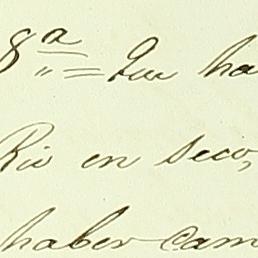 8ª = Que ha
Rio en seco,
haber cam